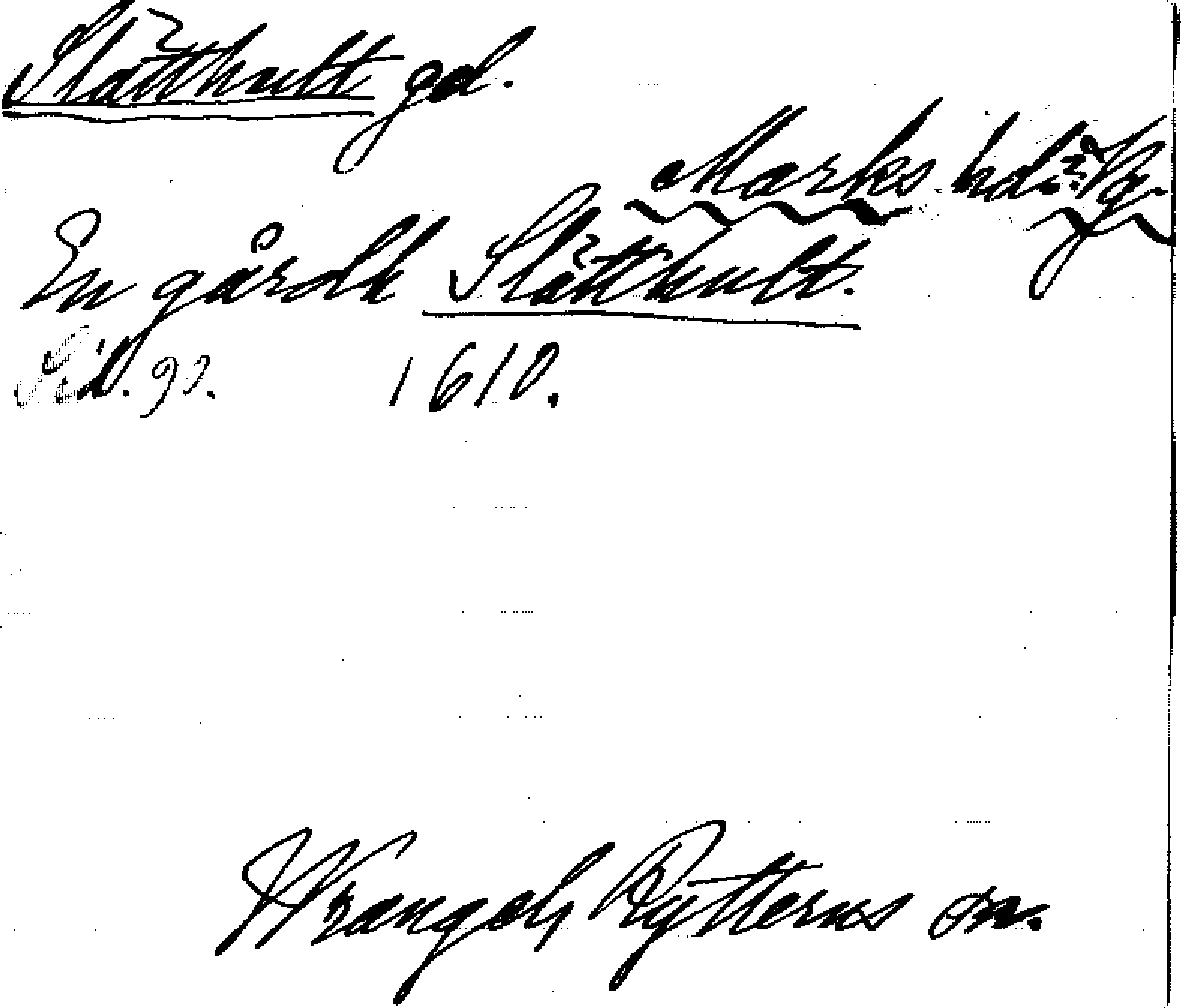 Slätthult gd.
Marks hd: Vg.
En gårdh Slätthult.
Sid. 90. 1610.
Wrangel, Rytterns sn.